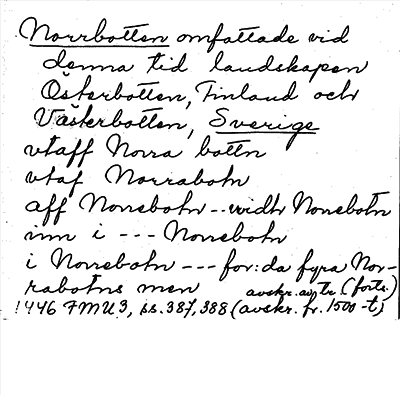 Norrbotten omfattade vid
denna tid landskapen
Österbotten, Finland och
Västerbotten, Sverige
vtaff Norra botn
vtaf Norrabotn
aff Norrebotn -- widh Norrebotn
inn i --- Norrebotn
i Norrebotn --- for:da fyra Nor-
rabotns men avskr. av tr. (forts.)
1446 FMU 3, ss. 387, 388 (avskr. fr. 1500-t)